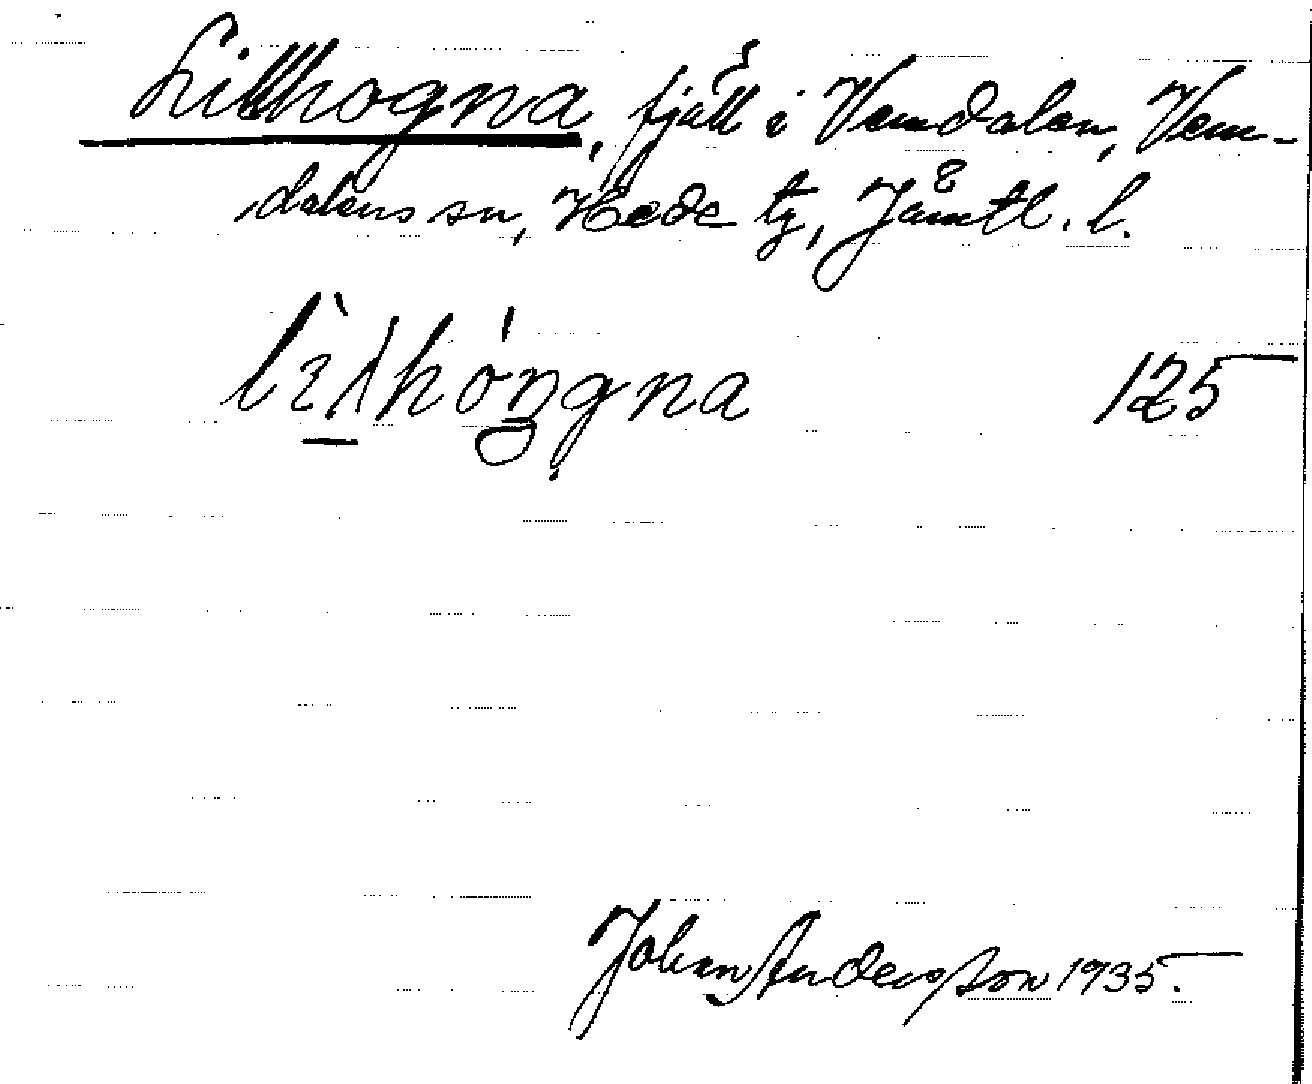 Lillhogna, fjäll i Vemdalen, Vem-
dalens sn, Hede tg, Jämtl. l.
125
Johan Andersson 1935.